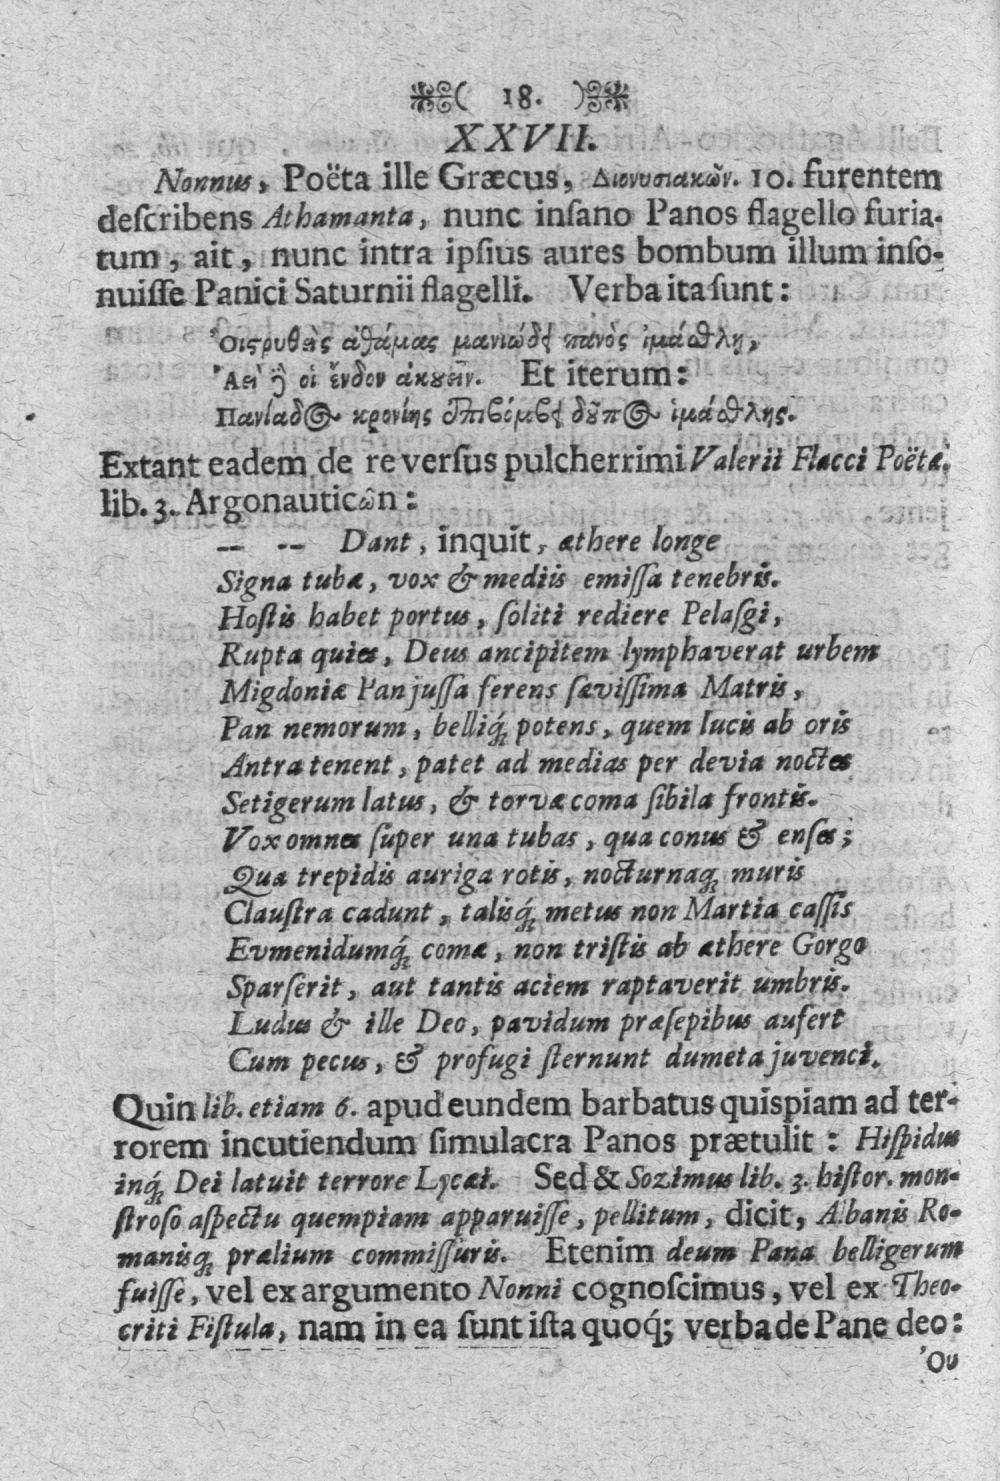 ( 18. )
XXVII.
Nonnus, Poëta ille Græcus, Διονυσιακῶν. 10. furentem
deſcribens Athamanta, nunc inſano Panos flagello furia-
tum, ait, nunc intra ipſius aures bombum illum inſo-
nuiſſe Panici Saturnii flagelli. Verba ita ſunt:
Οἰςρηθεὶς ἀθάμας μανιώδϊ πανὸς ἱμάσθλη,
οἱ ἔνδον ἀκουεῖν. Et iterum:
Πανιάδος κρονίης ἐπιβόμβϊ δοῦπος ἱμάσθλης.
Extant eadem de re verſus pulcherrimi Valerii Flacci Poëtæ.
lib. 3. Argonauticῶn:
-- -- Dant, inquit, æthere longe
Signa tubæ, vox & mediis emiſſa tenebris.
Hoſtis habet portus, ſoliti rediere Pelaſgi,
Rupta quies, Deus ancipitem lymphaverat urbem
Migdoniæ Pan juſſa ferens ſæviſſima Matris,
Pan nemorum, belliq́; potens, quem lucis ab oris
Antra tenent, patet ad medias per devia noctes
Setigerum latus, & torvæ coma ſibila frontis.
Vox omnes ſuper una tubas, qua conus & enſes;
Qua trepidis auriga rotis, nocturnaq; muris
Clauſtra cadunt, talisq́; metus non Martia caſſis
Evmenidumq́; comæ, non triſtis ab æthere Gorgo
Sparſerit, aut tantis aciem raptaverit umbris.
Ludus & ille Deo, pavidum præſepibus aufert
Cum pecus, & profugi ſternunt dumeta juvenci.
Quin lib. etiam 6. apud eundem barbatus quispiam ad ter-
rorem incutiendum ſimulacra Panos prætulit: Hiſpidus
inq́; Dei latuit terrore Lycæi. Sed & Sozimus lib. 3. hiſtor. mon-
ſtroſo aſpectu quempiam apparuiſſe, pellitum, dicit, Albanis Ro-
manisq; prælium commiſſuris. Etenim deum Pana belligerum
fuiſſe, vel ex argumento Nonni cognoſcimus, vel ex Theo-
criti Fiſtula, nam in ea ſunt iſta quoq́; verba de Pane deo:
Ὀυ